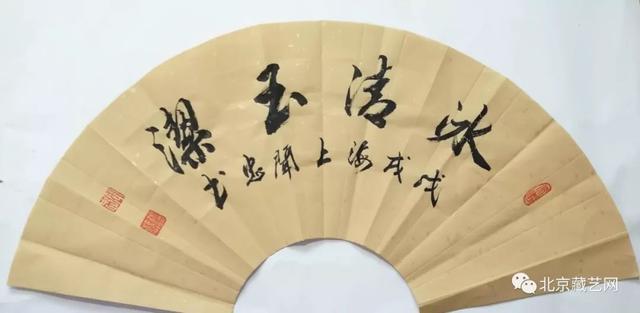 冰清玉潔
戊戌海上聞忠书
北京藏艺网